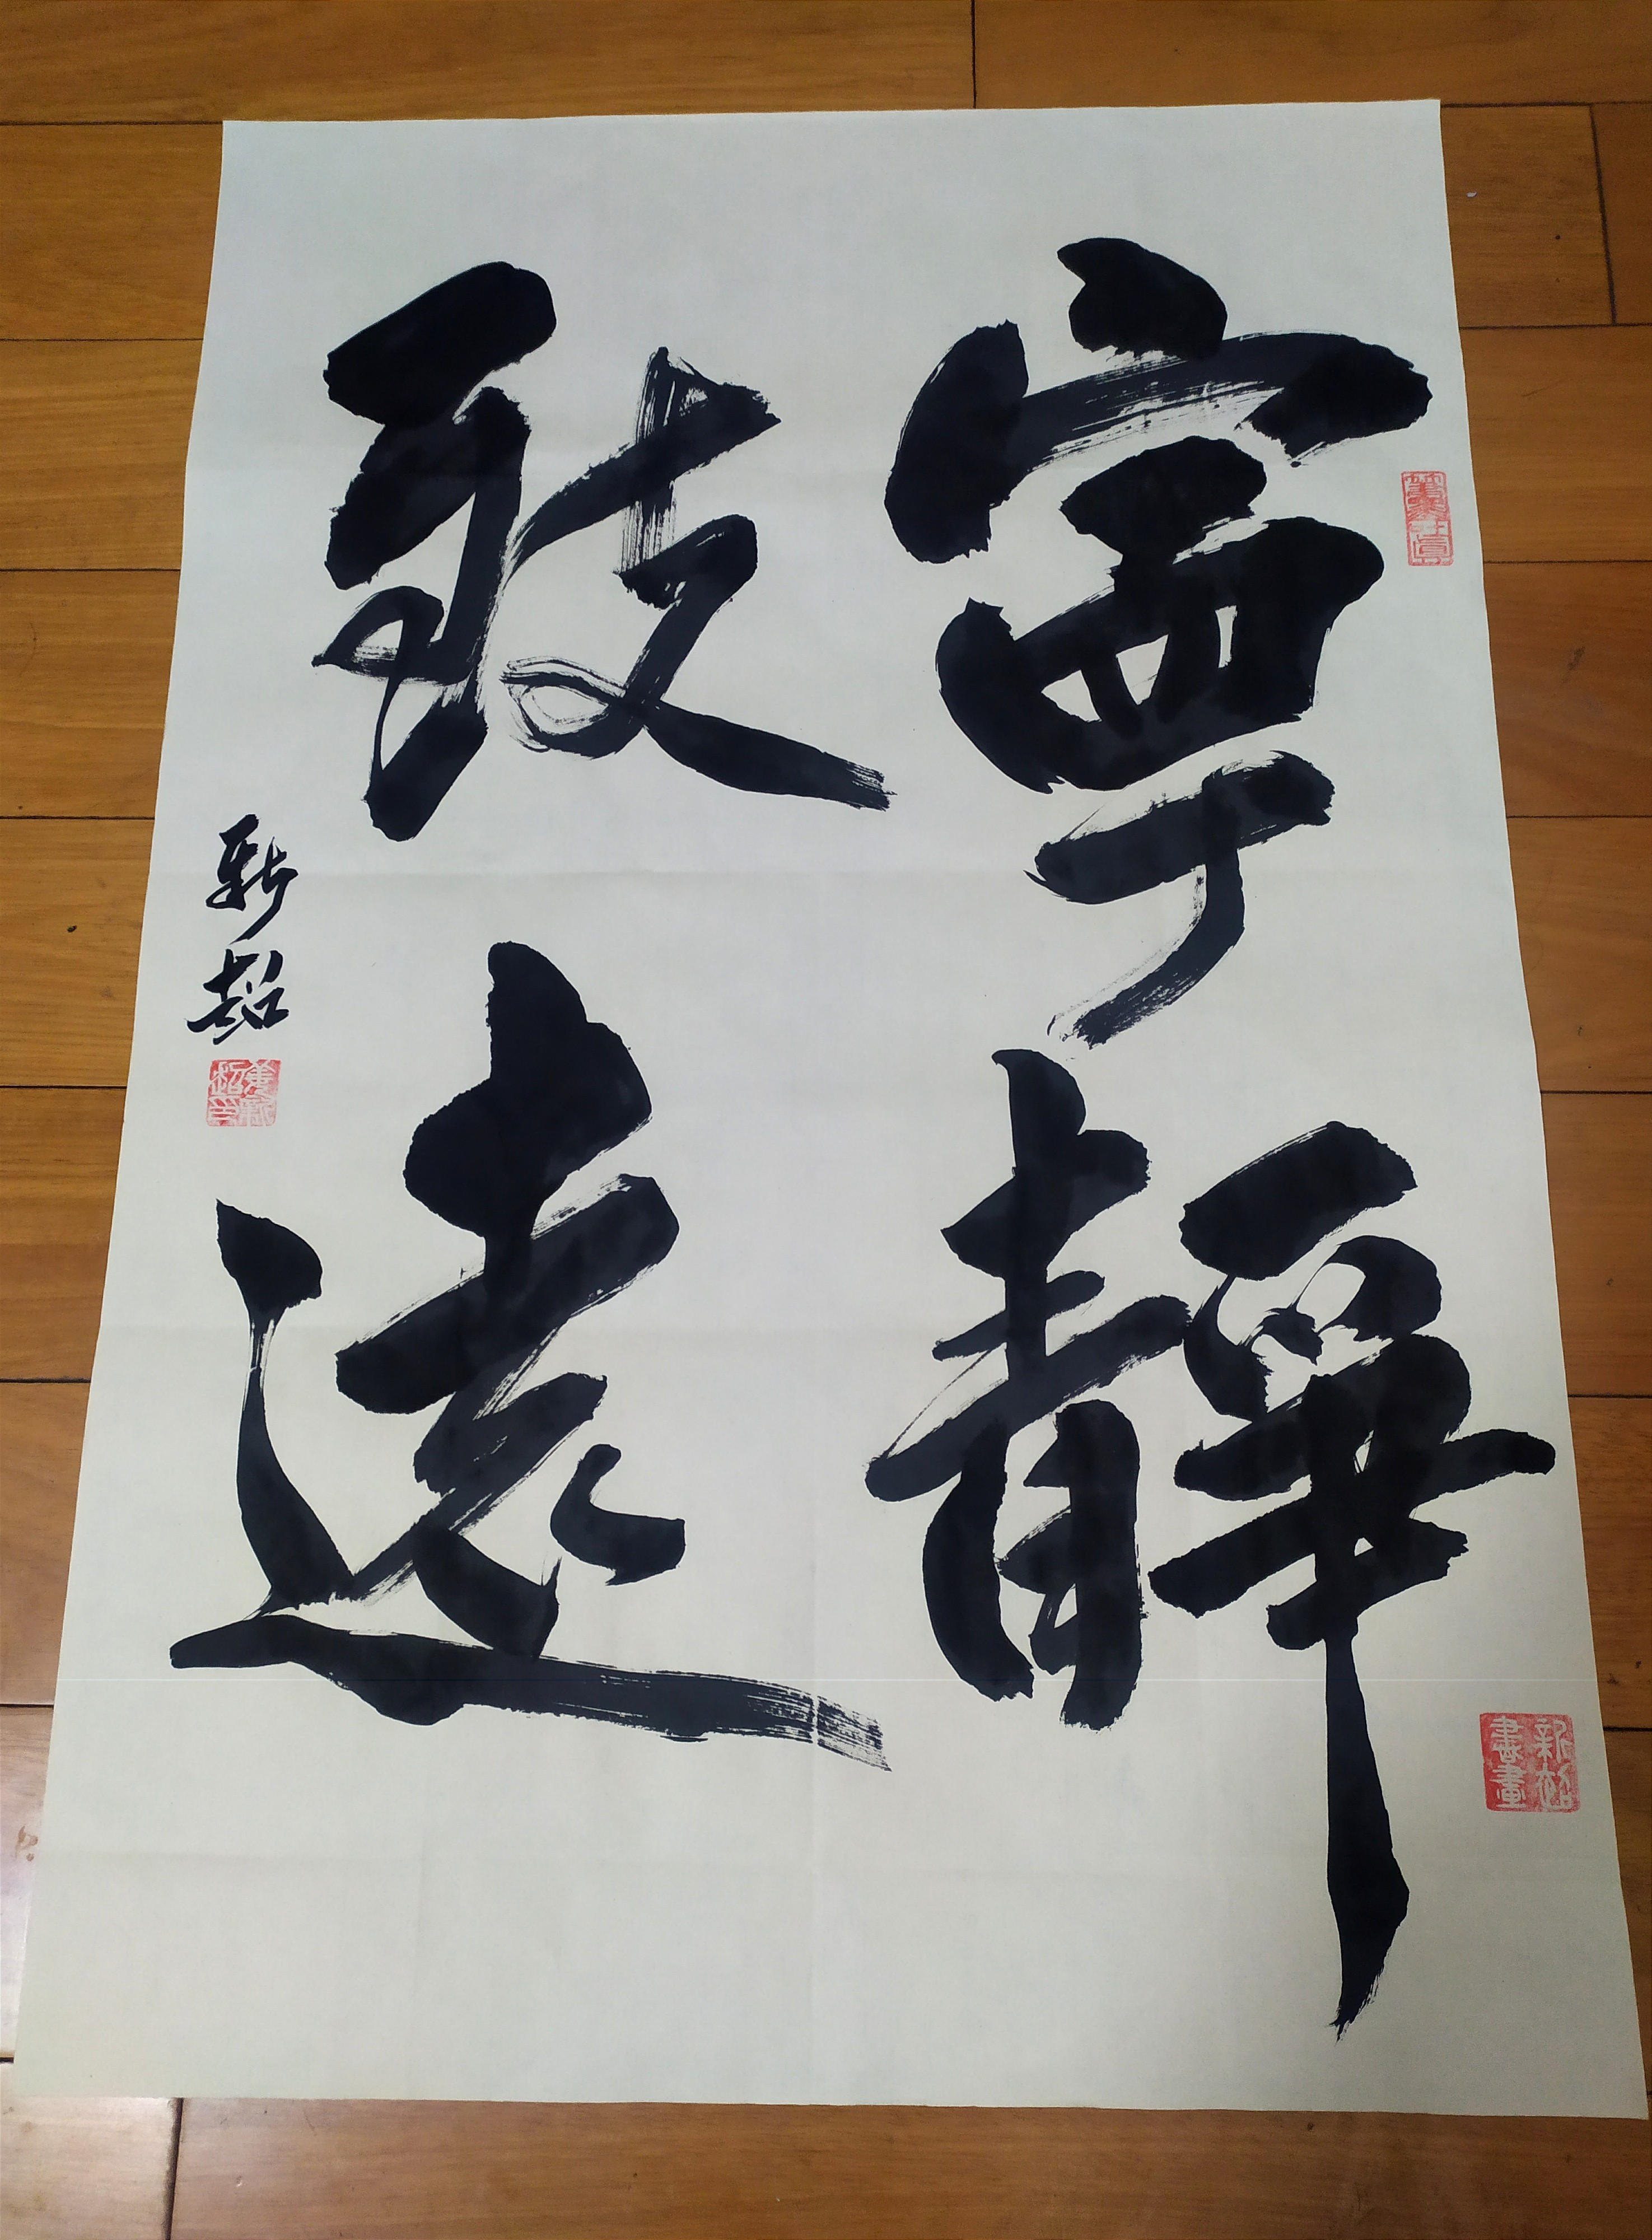 寧靜
致遠
新超
新超
書畫